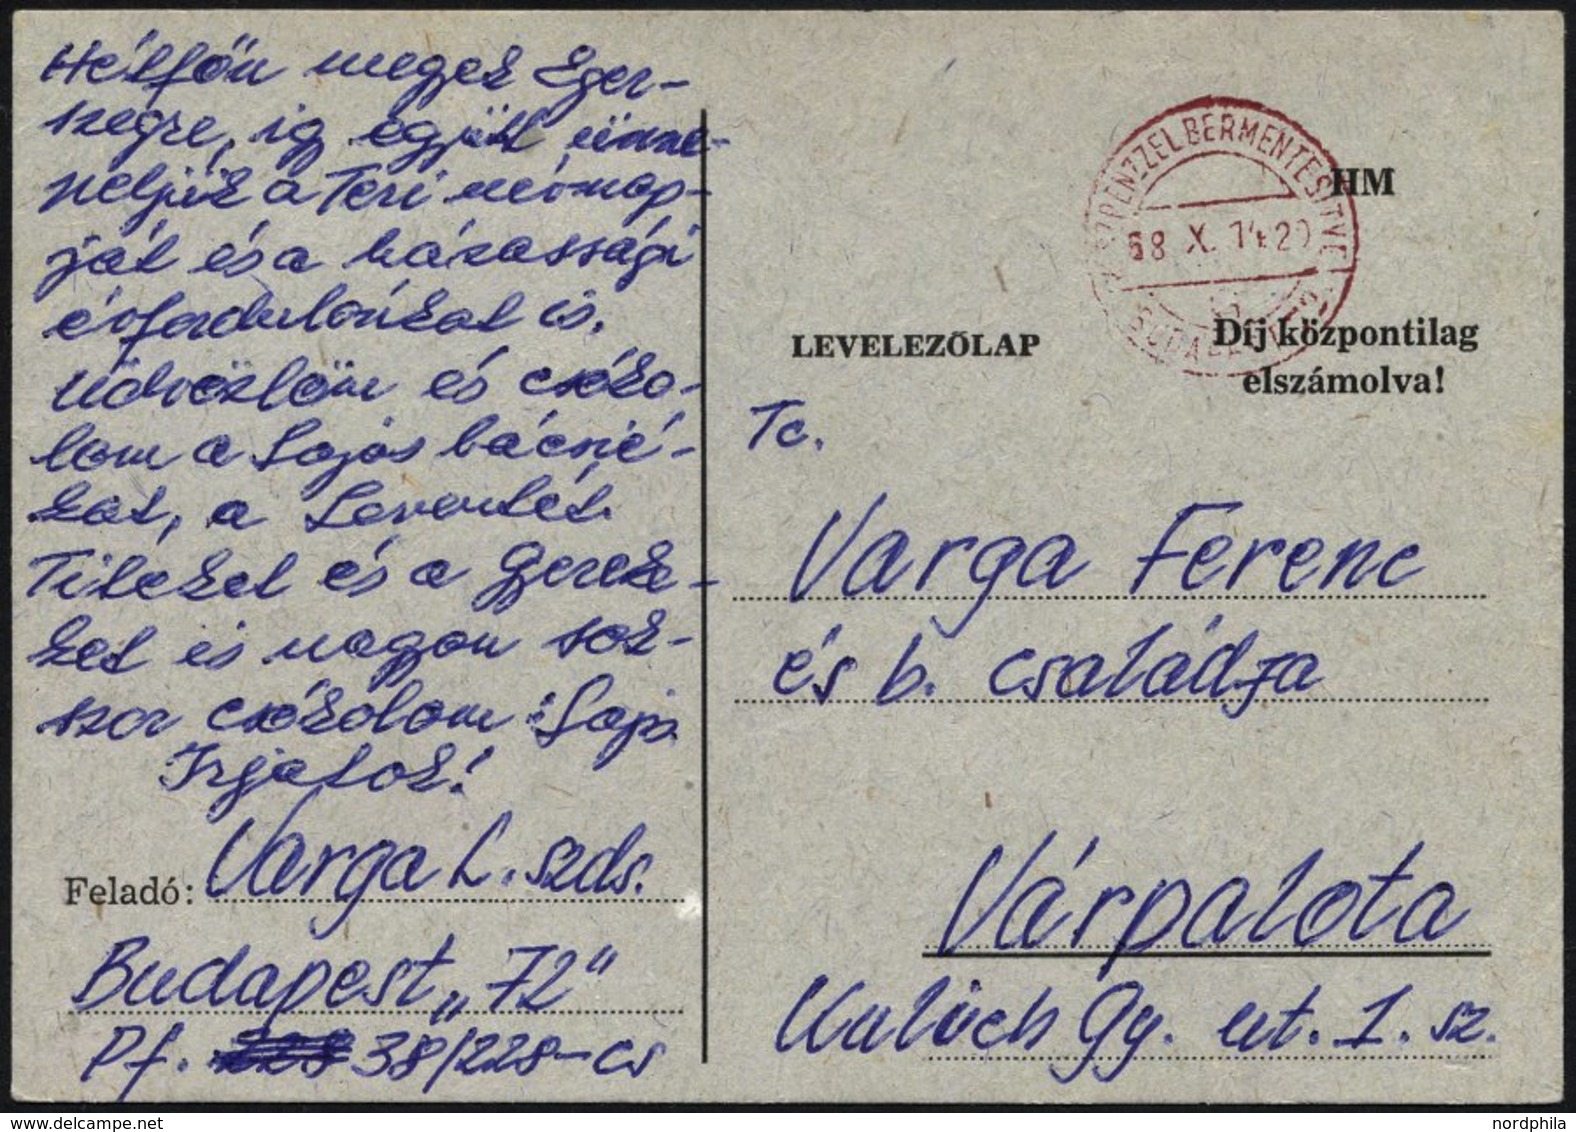 Hétfőn megyek Eger-
szegre, így együtt ünne-
peljük a Teri névnap-
ját és a házassági
évfordulónkat is.
Üdvözlöm és csóko-
lom a Lajos bácsié-
kat, a Leventét.
Titeket és a gyereke-
ket is nagyon sok-
szor csókolom: Lajos
Írjatok!
Feladó: Varga L. szds.
Budapest „72"
Pf. 38/228-cs
KÉSZPÉNZZEL BÉRMENTESÍTVE
68 X. 14 20
BUDAPEST
HM
LEVELEZŐLAP
Díj központilag
elszámolva!
Tc.
Varga Ferenc
és b. családja
Várpalota
Kulich Gy. ut. 1. sz.
delcampe.net
nordphila